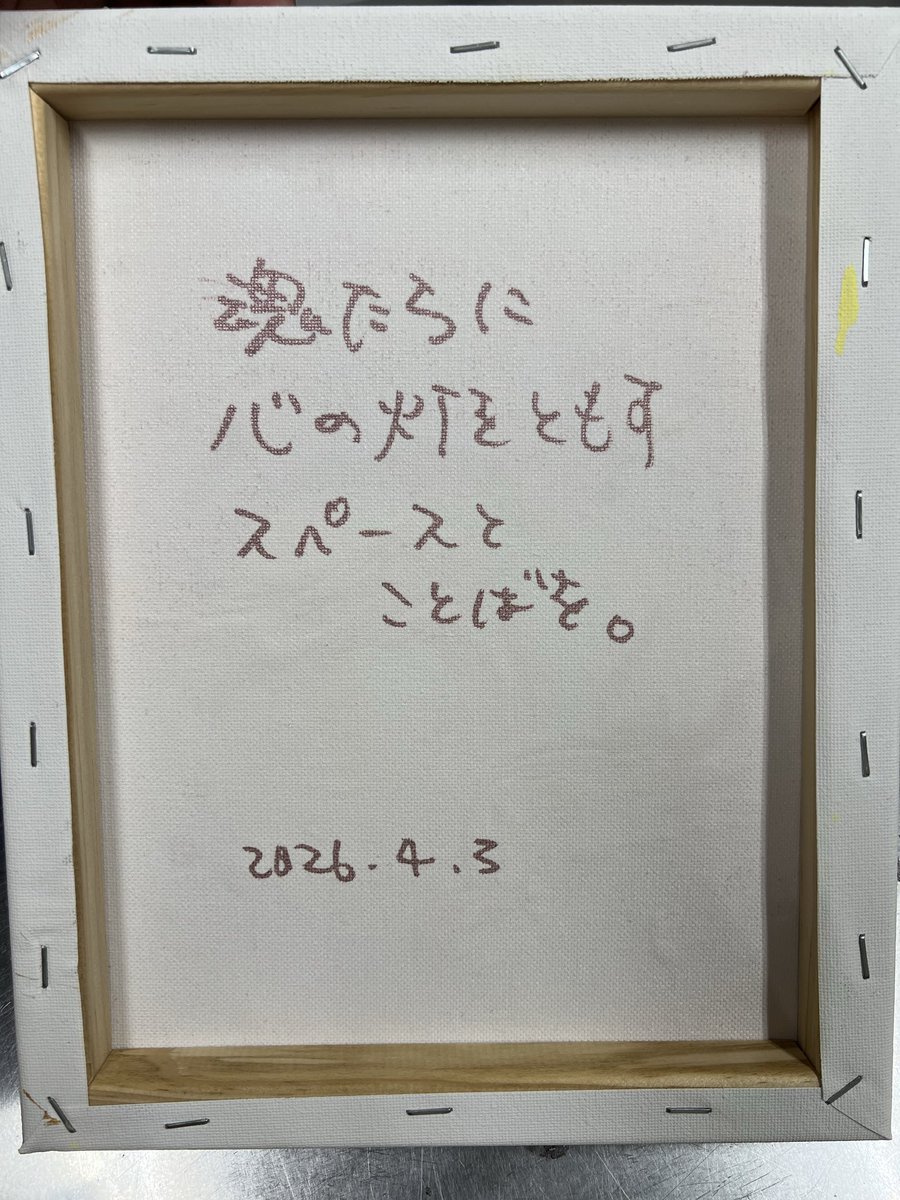 魂たちに
心の灯をともす
スペースと
ことばを。
2026.4.3